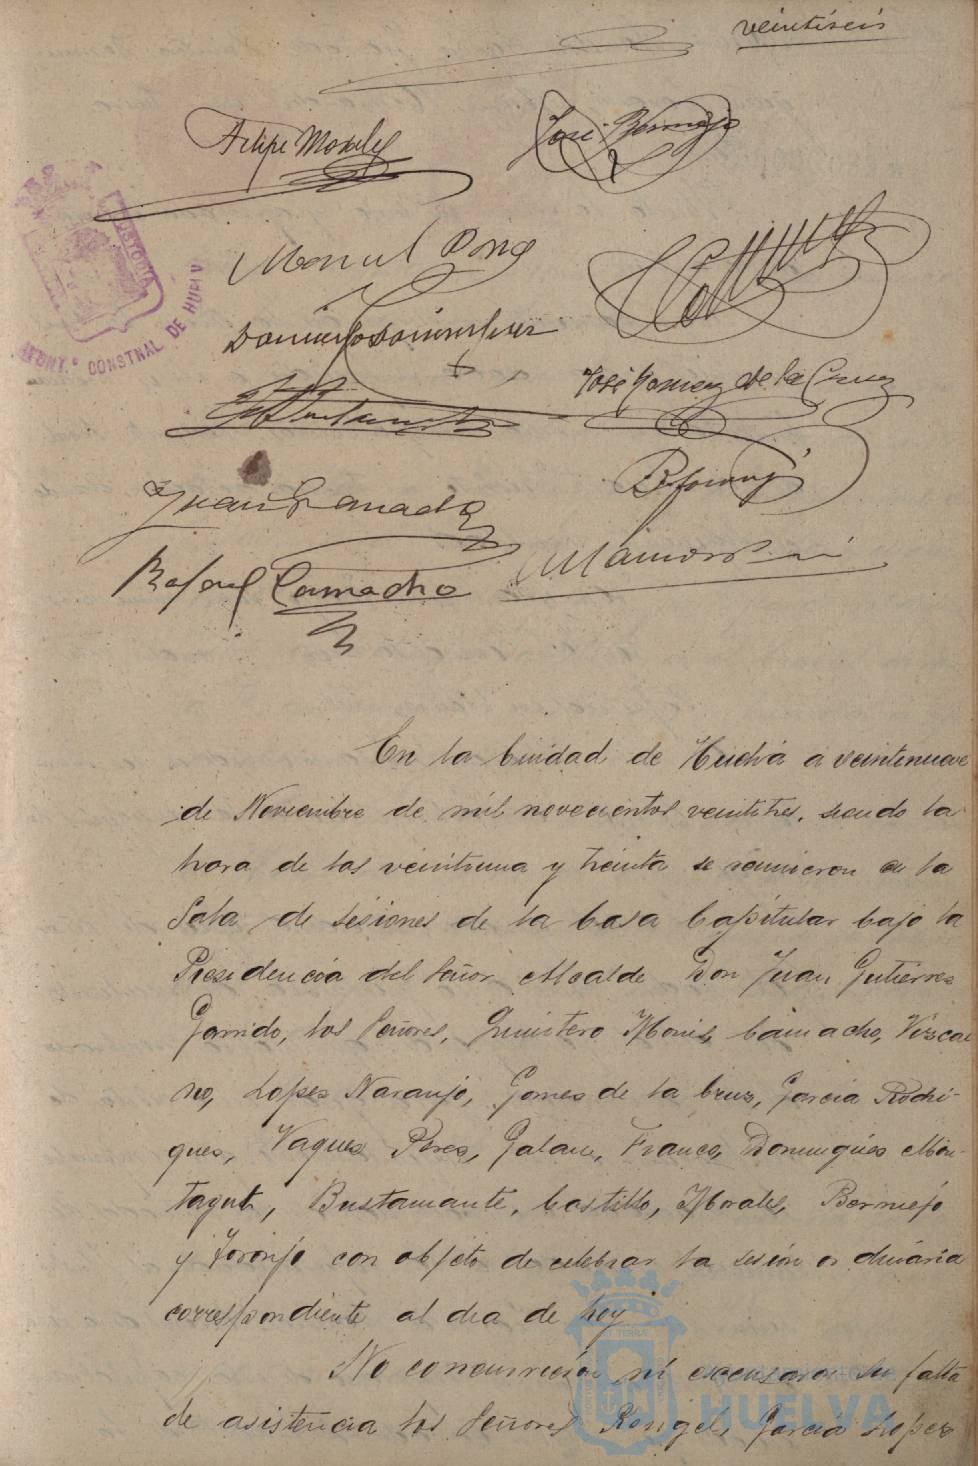 veintiseis
Felipe Morales
José Bermejo
Manuel
José Gomez de la Cruz
Juan Granado
Rafael Camacho
AYUNT.º CONSTNAL DE HUELV
En la Ciudad de Huelva a veintinueve
de Noviembre de mil novecientos veintitres, siendo la
hora de las veintiuna y treinta se reunieron en la
Sala de sesiones de la Casa Capitular bajo la
Presidencia del Señor Alcalde Don Juan Gutierrez
Garrido, los Señores, Quintero Monis, Camacho, Vizcai
no, Lopez Naranjo, Gomez de la Cruz, Garcia Rodri-
guez, Vazquez Perez, Galan, Franco, Dominguez Mon-
tagut, Bustamante, Castillo, Morales, Bermejo
y Toronjo con objeto de celebrar la sesión ordinaria
correspondiente al dia de hoy
No concurrieron ni excusaron su falta
de asistencia los Señores Rengel, Garcia Lopez
HUELVA